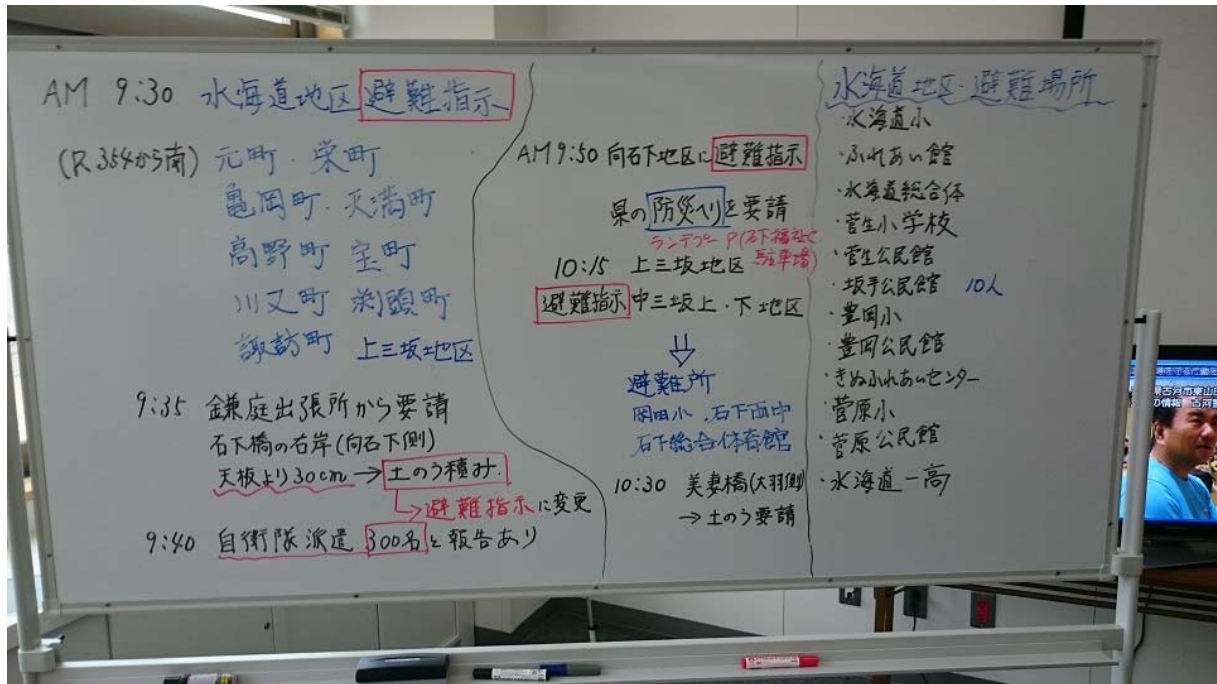 AM 9:30 水海道地区 避難指示
(R.354から南) 元町・栄町
亀岡町・天満町
高野町 宝町
川又町 渕頭町
諏訪町 上三坂地区
9:35 鎌庭出張所から要請
石下橋の右岸(向石下側)
天板より30cm→土のう積み.
→避難指示に変更
9:40 自衛隊派遣 300名と報告あり
AM 9:50 向石下地区に避難指示
県の防災ヘリを要請
ランデブーP(石下福祉C
駐車場)
10:15 上三坂地区
避難指示 中三坂上・下地区
⇓
避難所
岡田小、石下西中
石下総合体育館
10:30 美妻橋(大羽側)
→土のう要請
水海道地区・避難場所
・水海道小
・ふれあい館
・水海道総合体
・菅生小学校
・菅生公民館
・坂手公民館 10人
・豊岡小
・豊岡公民館
・きぬふれあいセンター
・菅原小
・菅原公民館
・水海道一高
県古河市東山田
の情報 古河